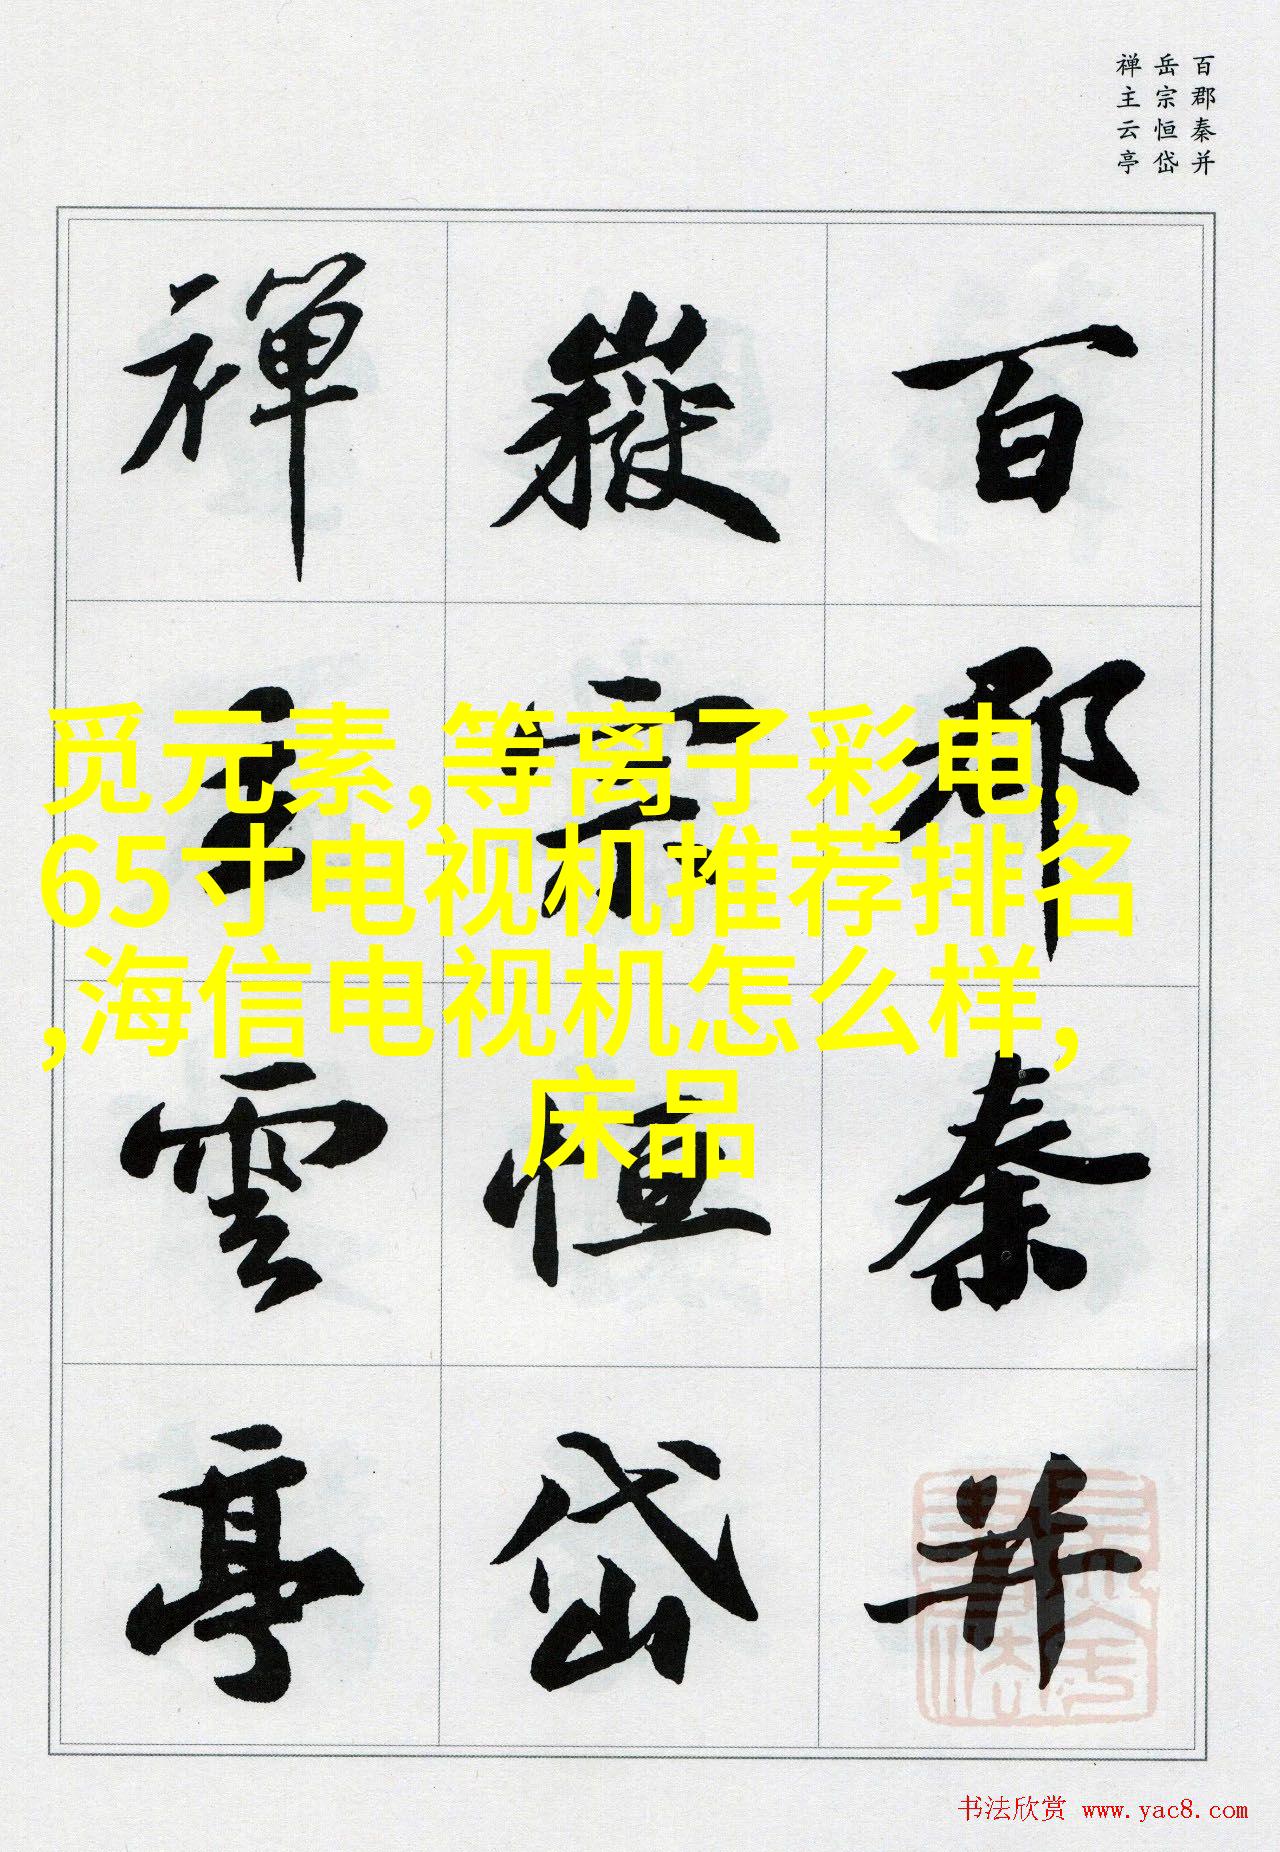 百郡秦并
岳宗恒岱
禅主云亭
百郡秦并
嶽宗恒岱
禅主雲亭
觅元素,等离子彩电,
65寸电视机推荐排名
,海信电视机怎么样,
床品
书法欣赏 www.yac8.com